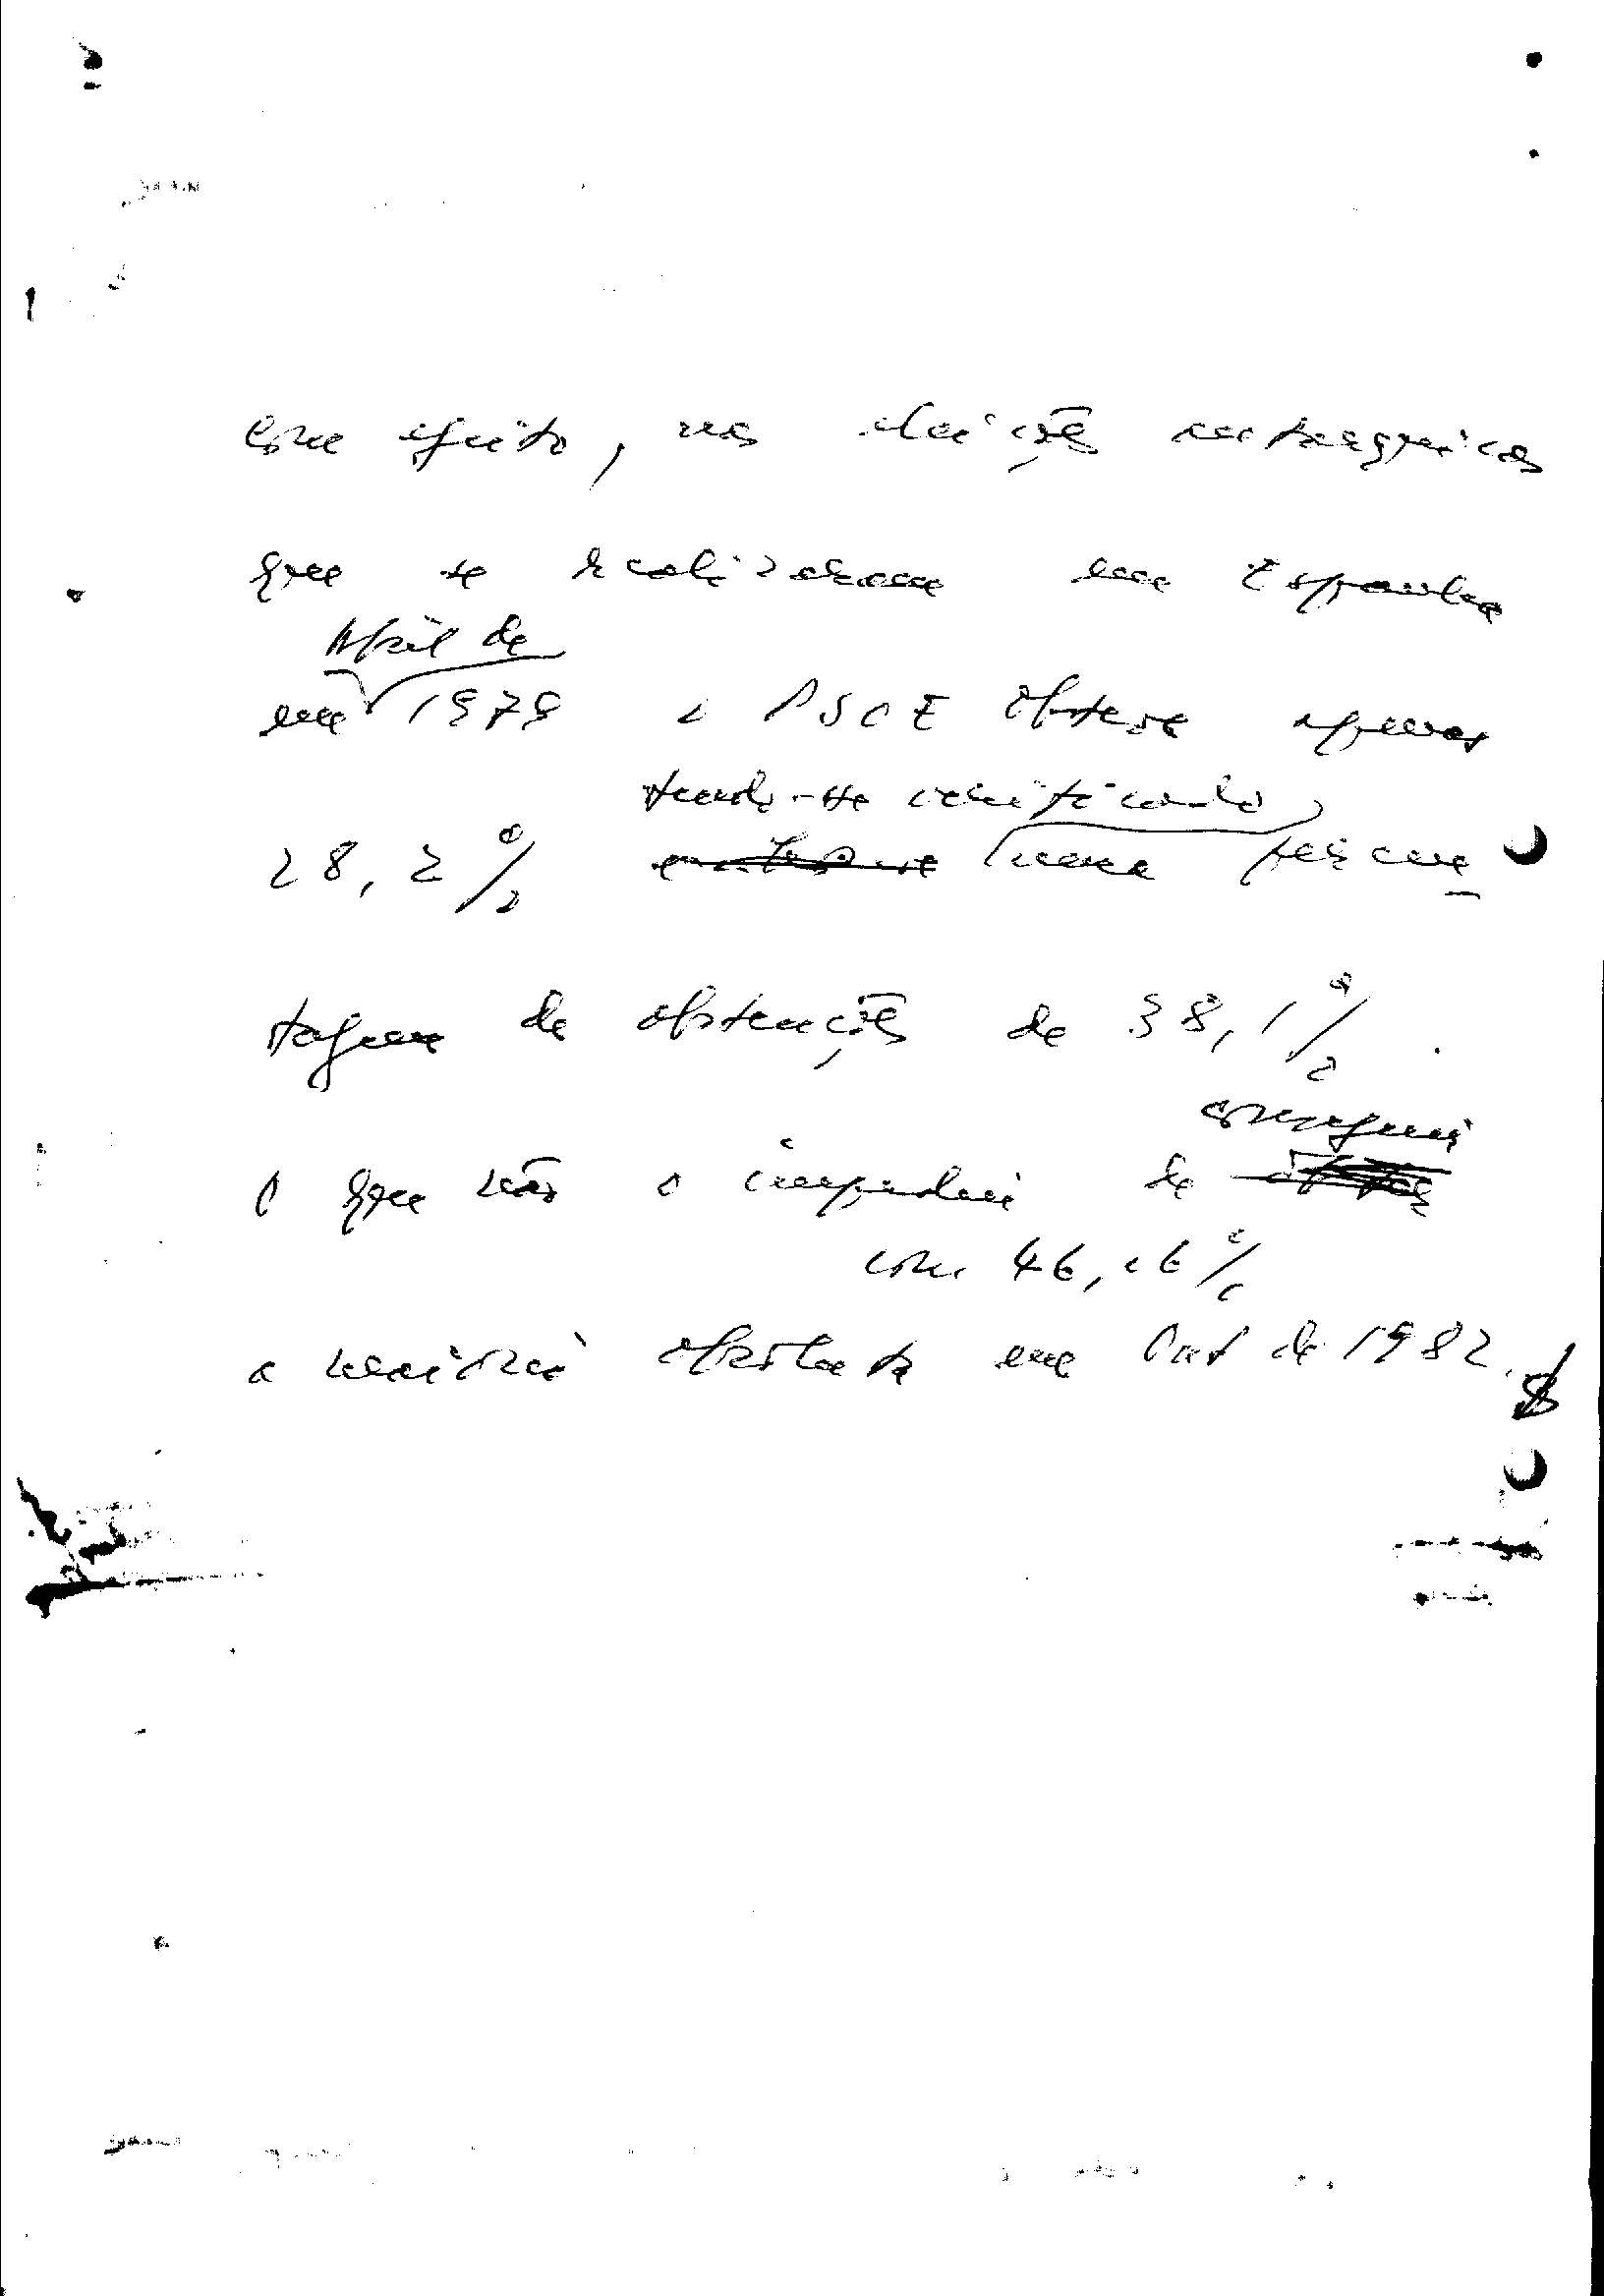 Com efeito, nas eleições autárquicas
que se realizaram em Espanha
Abril de
em 1979 o PSOE obteve apenas
tendo-se verificado
28,2% uma percen-
tagem de abstenções de 38,1%.
conseguir
O que não o impediu de
com 46,06%
a maioria absoluta em Out de 1982.